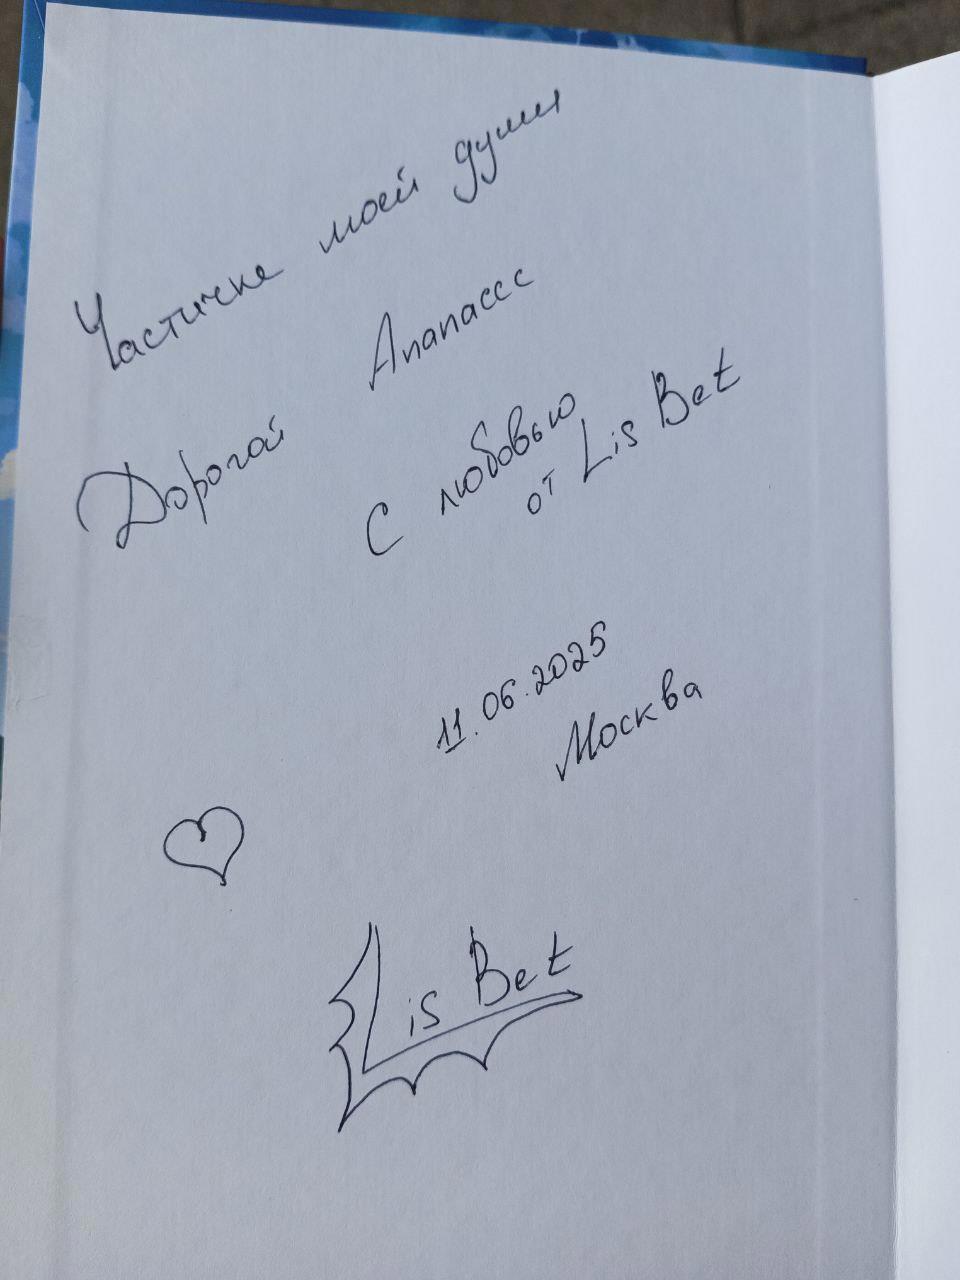 Частичке моей души
Дорогой Апапассс
С любовью
от Lis Bet
11.06.2025
Москва
Lis Bet